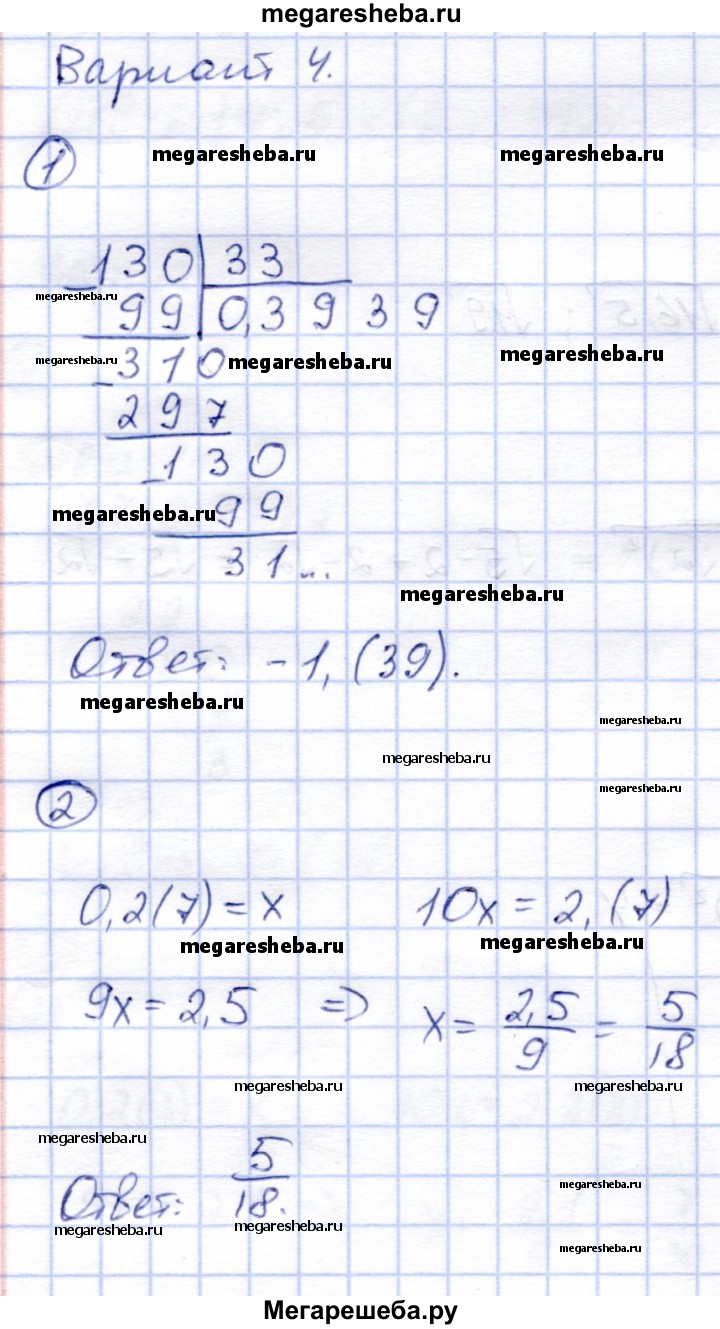 megaresheba.ru
Вариант 4.
1
megaresheba.ru megaresheba.ru
130 | 33
megaresheba.ru
99 | 0,3939
megaresheba.ru
- 310 megaresheba.ru megaresheba.ru
297
- 130
megaresheba.ru 99
31...
megaresheba.ru
Ответ: -1,(39).
megaresheba.ru
megaresheba.ru
megaresheba.ru
megaresheba.ru
2
0,2(7) = x 10x = 2,(7)
megaresheba.ru megaresheba.ru
9x = 2,5 => x = 2,5/9 = 5/18
megaresheba.ru megaresheba.ru
megaresheba.ru
Ответ: 5/18.
megaresheba.ru
megaresheba.ru megaresheba.ru
megaresheba.ru
Мегарешеба.ру